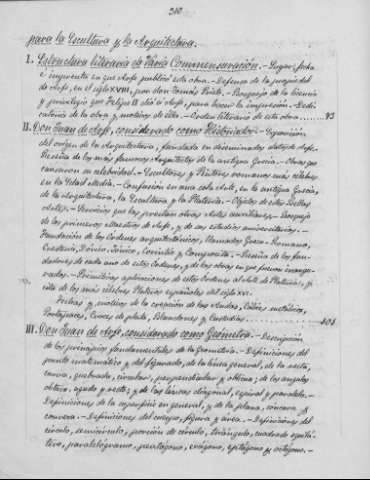 310
para la Escultura y la Arquitectura.
I. Estructura literaria de Varia Commensuración. - Lugar, fecha
é imprenta en que Arfe publicó esta obra. - Defensa de la propiedad
de Arfe, en el siglo XVIII, por don Tomás Prieto. - Bosquejo de la licencia
y privilegio que Felipe II dió á Arfe, para hacer la impresión. - Dedi-
catoria de la obra y motivos de ella. - Orden literario de esta obra. 93
II. Don Juan de Arfe, considerado como Historiador. - Exposición
del origen de la Arquitectura, fundada en documentados datos de Arfe.
Reseña de los más famosos Arquitectos de la antigua Grecia. - Obras que
causaron su celebridad. - Escultores y Pintores romanos más célebres
en la Edad Media. - Confusión en una sola Arte, en la antigua Grecia,
de la Arquitectura, la Escultura y la Platería. - Objetos de estas Bellas
Artes. - Servicios que las prestan otras Artes auxiliares. - Bosquejo
de los primeros Maestros de Arfe, y de sus estudios universitarios. -
Fundación de los Ordenes arquitectónicos, llamados Greco-Romano,
Toscano, Dórico, Jónico, Corintio y Compuesto. - Reseña de los fun-
dadores de cada uno de estos Ordenes, y de las obras en que fueron
vados. - Primitivas aplicaciones de estos Ordenes al Arte de Platería, y
cita de los más célebres Plateros españoles del siglo XVI.
Fechas y motivos de la creación de las Andas, Cálices metálicos,
Portapaces, Cruces de plata, Blandones y Custodias. 101
III. Don Juan de Arfe, considerado como Geómetra. - Descripción
de los principios fundamentales de la Geometría. - Definiciones del
punto matemático y del figurado, de la línea general, de la recta,
curva, quebrada, circular, perpendicular y oblicua; de los ángulos
obtuso, agudo y recto; y de las líneas diagonal, espiral y paralela. -
Definiciones de la superficie en general, y de la plana, cóncava y
convexa. - Definiciones del cuerpo, figura y área. - Definiciones del
círculo, semicírculo, porción de círculo, triángulo, cuadrado equilá-
tero, paralelogramo, pentágono, exágono, eptágono y octógono. -